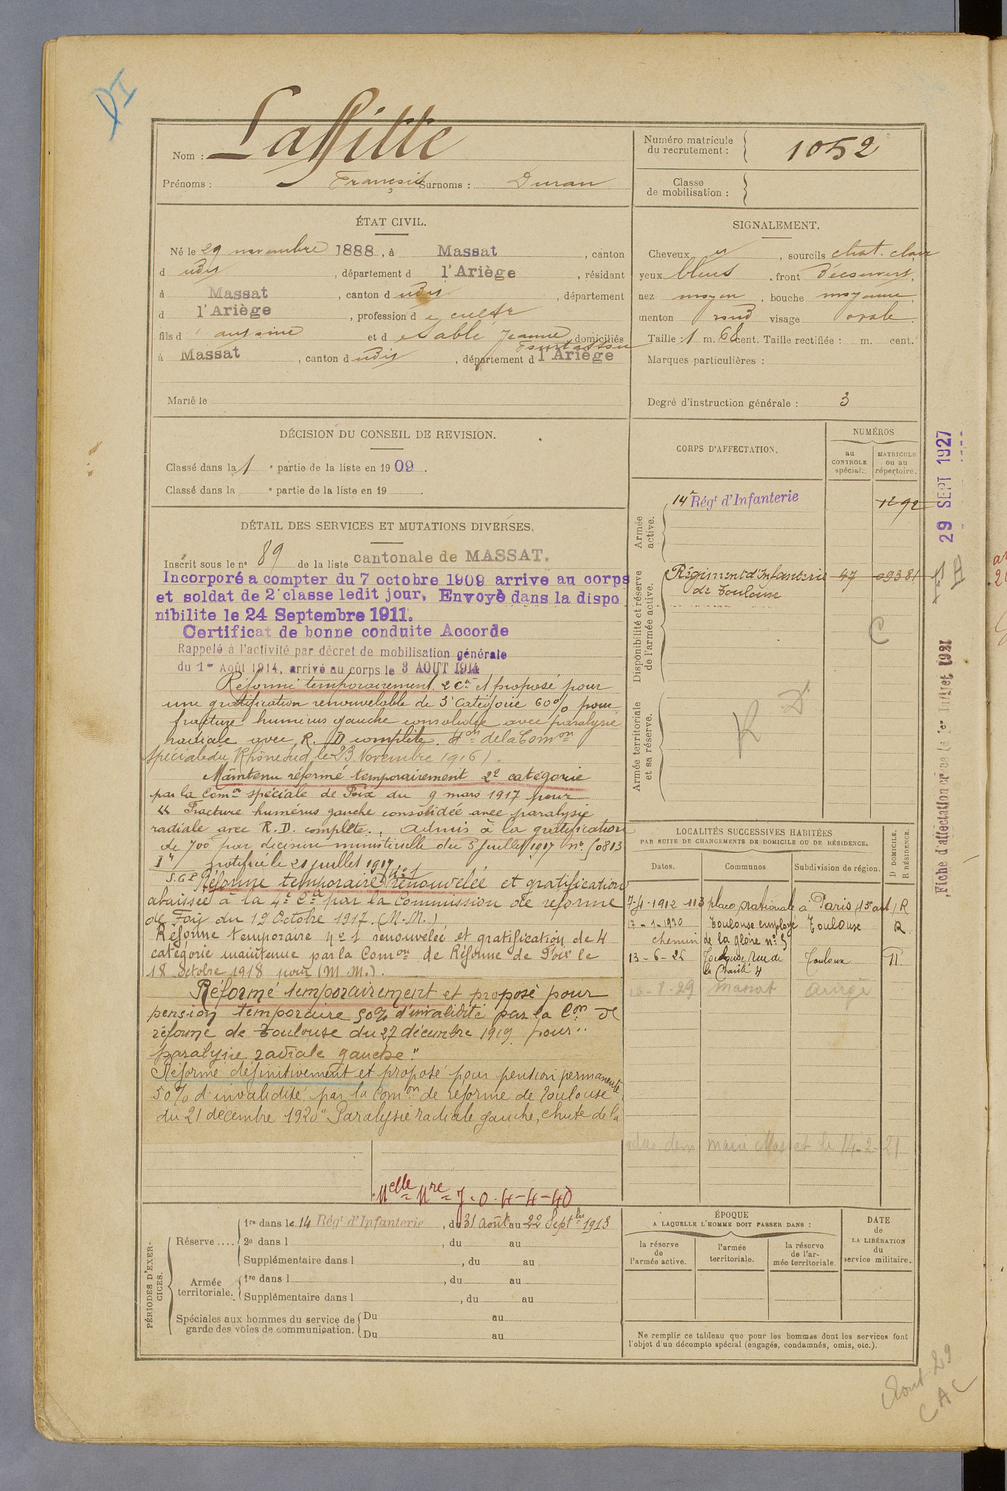 Nom : Laffitte
Prénoms : François Surnoms : Duran
Numéro matricule du recrutement : 1052
Classe de mobilisation :
ÉTAT CIVIL.
Né le 29 novembre 1888, à Massat, canton
d udit, département d l'Ariège, résidant
à Massat, canton d udit, département
d l'Ariège, profession d
fils d' antoine et d e Sablé Jeanne domiciliés
à Massat, canton d udit, département d l'Ariège
Marié le
SIGNALEMENT.
Cheveux et, sourcils chat. clair
yeux bleus, front Découvert,
nez moyen, bouche moyenne,
menton rond visage ovale.
Taille : 1 m. 68 cent. Taille rectifiée : m. cent.
Marques particulières :
Degré d'instruction générale : 3
DÉCISION DU CONSEIL DE REVISION.
Classé dans la 1 e partie de la liste en 1909.
Classé dans la e partie de la liste en 19
DÉTAIL DES SERVICES ET MUTATIONS DIVERSES.
Inscrit sous le n° 89 de la liste cantonale de MASSAT.
Incorporé a compter du 7 octobre 1909 arrive au corps
et soldat de 2e classe ledit jour, Envoyé dans la dispo
nibilite le 24 Septembre 1911.
Certificat de bonne conduite Accorde
Rappelé à l'activité par décret de mobilisation générale
du 1er Août 1914, arrivé au corps le 3 AOUT 1914
Réformé temporairement 2e Cie et proposé pour
une gratification renouvelable de 5e Catégorie 60% pour
fracture humérus gauche consolidée avec paralysie
radiale avec R. D complète. Don de la Comon
spéciale du Rhône Sud, le 23 Novembre 1916).
Maintenu réformé temporairement 2e catégorie
par la Comon spéciale de Foix du 9 mars 1917 pour
" Fracture humérus gauche consolidée avec paralysie
radiale avec R. D. complète., Admis à la gratification
de 700f par décision ministérielle du 5 juillet 1917 n° 50813
notifié le 21 juillet 1917
Réforme temporaire n° 1 renouvelée et gratification
abaissée à la 4e Cie par la Commission de réforme
de Foix du 19 Octobre 1917. (M.M.)
Réforme temporaire n° 1 renouvelée et gratification de 4
catégorie maintenue par la Comon de Réforme de Foix le
18 Octobre 1918 pour (M.M.).
Réformé temporairement et proposé pour
pension temporaire 50% d'invalidité par la Con de
réforme de Toulouse du 27 décembre 1919 pour "
paralysie radiale gauche."
Réformé définitivement et proposé pour pension permanente
50% d'invalidité par la Comon de réforme de Toulouse
du 21 decembre 1920 "Paralysie radiale gauche, chute de la
Nelle Nre 7-0-4-4-40
CORPS D'AFFECTATION.
NUMÉROS
au CONTROLE spécial.
MATRICULE ou au répertoire.
Armée active.
14e Régt d'Infanterie 1292
Disponibilité et réserve de l'armée active.
Régiment d'Infanterie de Toulouse 57 09381
C
Armée territoriale et sa réserve.
R D
LOCALITÉS SUCCESSIVES HABITÉES
PAR SUITE DE CHANGEMENTS DE DOMICILE OU DE RÉSIDENCE.
Dates. Communes Subdivision de région. D DOMICILE. R RÉSIDENCE.
7-4-1912 113 place nationale à Paris 15e arrt R
1920 Toulouse employé Toulouse R
chemin de la gloire n° 5
13-6-25 Toulouse, rue de la Chaité 4 Toulouse D
8-29 Massat Ariège
PÉRIODES D'EXERCICES.
Réserve....
1re dans le 14 Régt d'Infanterie, du 31 août au 22 Septbre 1913
2e dans l , du au
Supplémentaire dans l , du au
Armée territoriale.
1re dans l , du au
Supplémentaire dans l , du au
Spéciales aux hommes du service de garde des voies de communication.
Du au
Du au
ÉPOQUE
A LAQUELLE L'HOMME DOIT PASSER DANS :
la réserve de l'armée active.
l'armée territoriale.
la réserve de l'armée territoriale.
DATE de LA LIBÉRATION du service militaire.
Ne remplir ce tableau que pour les hommes dont les services font
l'objet d'un décompte spécial (engagés, condamnés, omis, etc.).
29 SEPT 1927
Août 29
CAC